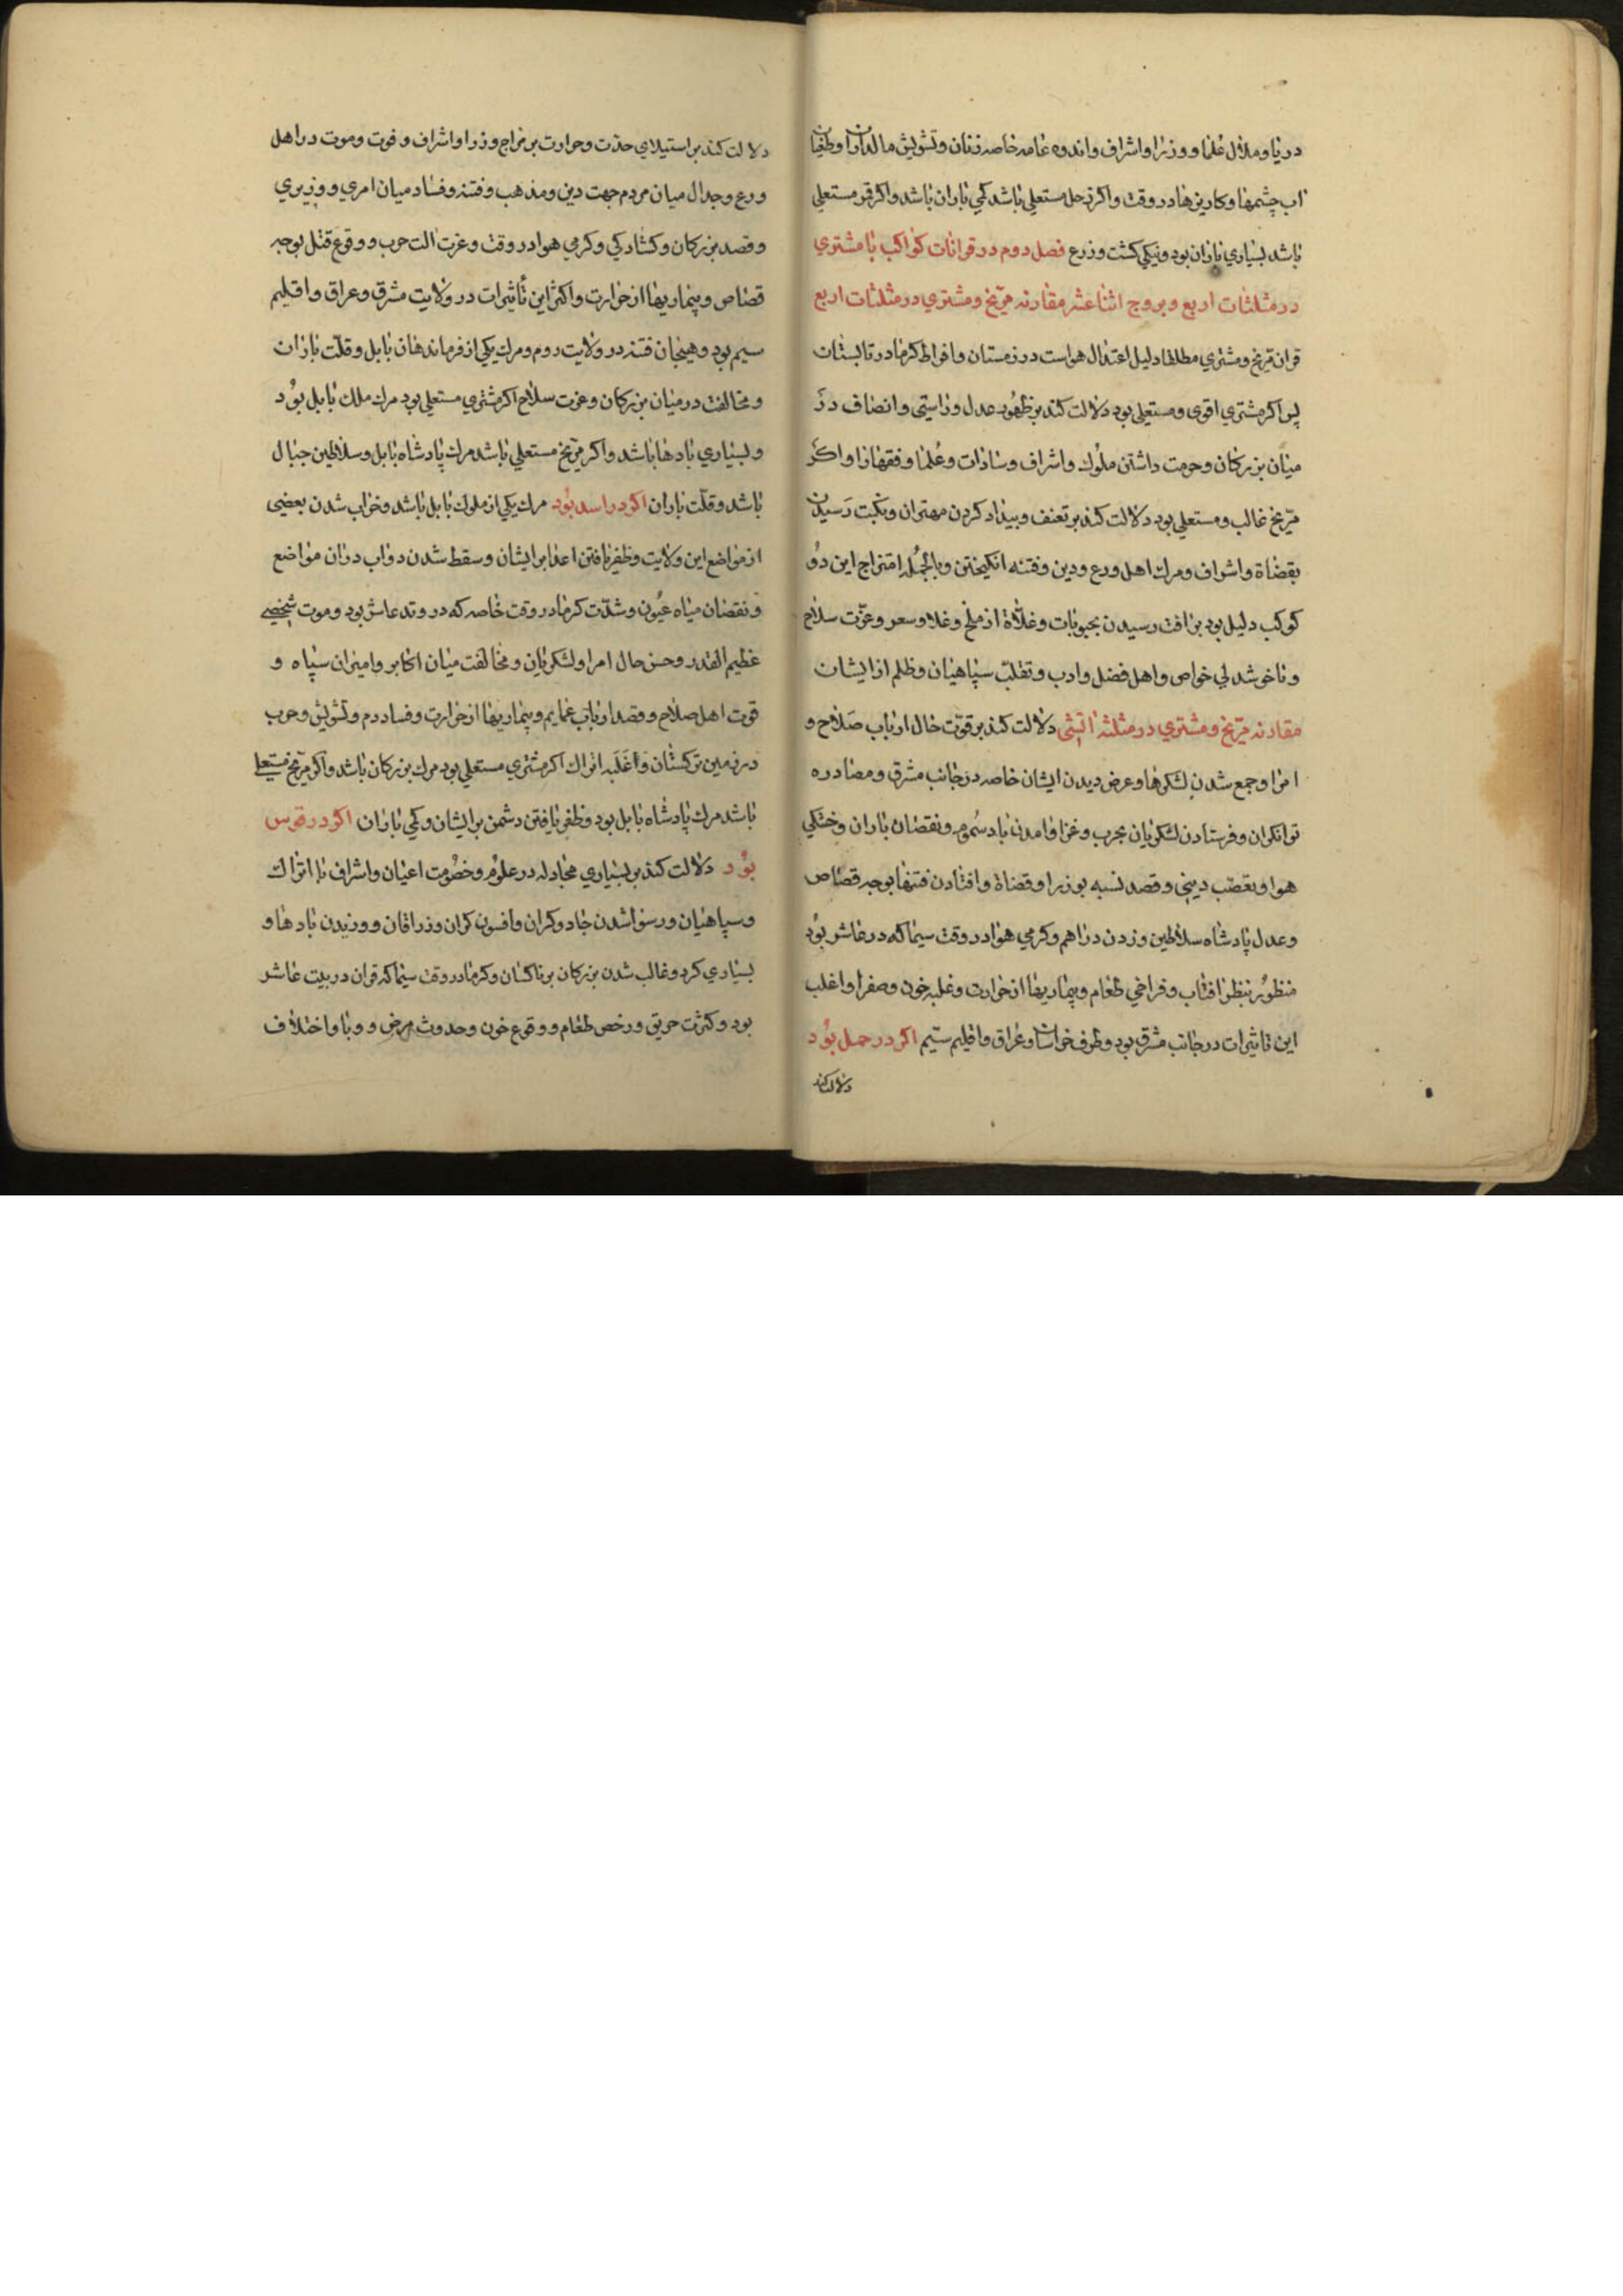 در دنیا و ملال علما و وزرا و اشراف و اندوه عامه خاصه زنان و تشویش مالداران و طغیان
اب چشمها و کاریزها در وقت و اکر زحل مستعلی باشد کمی باران باشد و اکر قمر مستعلی
باشد بسیاری باران بود و نیکی کشت و زرع فصل دوم در قرانات کواکب با مشتری
در مثلثات اربع و بروج اثنا عشر مقارنه مریخ و مشتری در مثلثات اربع
قران مریخ و مشتری مطلقا دلیل اعتدال هواست در زمستان و افراط کرما در تابستان
پس اکر مشتری اقوی و مستعلی بود دلالت کند بر ظهور عدل و راستی و انصاف در
میان بزرکان و حرمت داشتن ملوک و اشراف و سادات و علما و فقها را و اکر
مریخ غالب و مستعلی بود دلالت کند بر تعنف و بیداد کردن مهتران و نکبت رسیدن
بقضاة و اشراف و مرک اهل ورع و دین و فتنه انکیختن و بالجمله امتزاج این دو
کوکب دلیل بود بر افت رسیدن بحبوبات و غلاة از ملخ و غلاء سعر و عزت سلاح
و ناخوشدلی خواص و اهل فضل و ادب و تغلب سپاهیان و ظلم از ایشان
مقارنه مریخ و مشتری در مثلثه اتشی دلالت کند بر قوت حال ارباب صلاح و
امرا و جمع شدن لشکرها و عرض دیدن ایشان خاصه در جانب مشرق و مصادره
توانکران و فرستادن لشکریان بحرب و غزا و امدن باد سموم و نقصان باران و خشکی
هوا و تعصب دینی و قصد نسبه بوزرا و قضاة و افتادن فتنها بوجه قصاص
و عدل پادشاه سلاطین و زدن دراهم و کرمی هوا در وقت سیما که در عاشر بود
منظور بنظر افتاب و فراخی طعام و بیماریها از حرارت و غلبه خون و صفرا و اغلب
این تاثیرات در جانب مشرق بود و طرف خراسان و عراق و اقلیم سیم اکر در حمل بود
دلالت کند
دلالت کند بر استیلای حدت و حرارت بر مزاج وزرا و اشراف و فوت و موت در اهل
ورع و جدال میان مردم جهت دین و مذهب و فتنه و فساد میان امری و وزیری
و قصد بزرکان و کشادکی و کرمی هوا در وقت و عزت الت حرب و وقوع قتل بوجه
قصاص و بیماریها از حرارت و اکثر این تأثیرات در ولایت مشرق و عراق و اقلیم
سیم بود و هیجان فتنه در ولایت روم و مرک یکی از فرماندهان بابل و قلت باران
و مخالفت در میان بزرکان و عزت سلاح اکر مشتری مستعلی بود مرک ملک بابل بود
و بسیاری بادها باشد و اکر مریخ مستعلی باشد مرک پادشاه بابل و سلاطین جبال
باشد و قلت باران اکر در اسد بود مرک یکی از ملوک بابل باشد و خراب شدن بعضی
از مواضع این ولایت و ظفر یافتن اعدا بر ایشان و سقط شدن دواب دران مواضع
و نقصان میاه عیون و شدت کرما در وقت خاصه که در وتد عاشر بود و موت شخصی
عظیم القدر و حسن حال امرا و لشکریان و مخالفت میان اکابر و امیران سپاه و
قوت اهل صلاح و قصد ارباب عمایم و بیماریها از حرارت و فساد دم و تشویش و حرب
در زمین ترکستان و اغلبه اتراک اکر مشتری مستعلی بود مرک بزرکان باشد و اکر مریخ مستعلی
باشد مرک پادشاه بابل بود و ظفر یافتن دشمن بر ایشان و کمی باران اکر در قوس
بود دلالت کند بر بسیاری مجادله در علوم و خصومت اعیان و اشراف با اتراک
و سپاهیان و رسوا شدن جادوکران و افسون کران و زراقان و وزیدن بادها و
بسیاری کرد و غالب شدن بزرکان بر ناکسان و کرما در وقت سیما که قران در بیت عاشر
بود و کثرت حریق و رخص طعام و وقوع خون و حدوث مرض و وبا و اختلاف